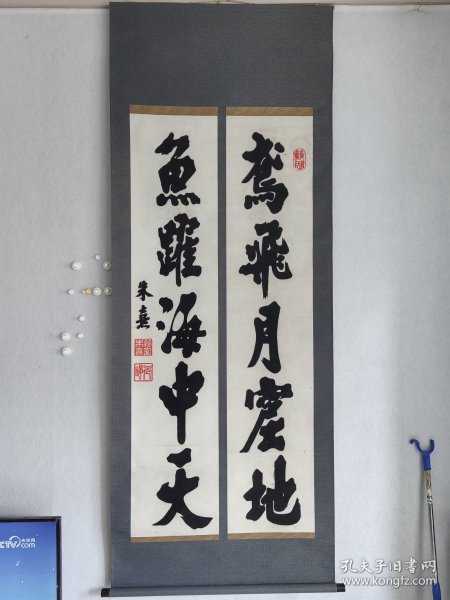 鸢飛月窟地
魚躍海中天
朱熹
CCTV.com 央视网
孔夫子旧书网
www.kongfz.com